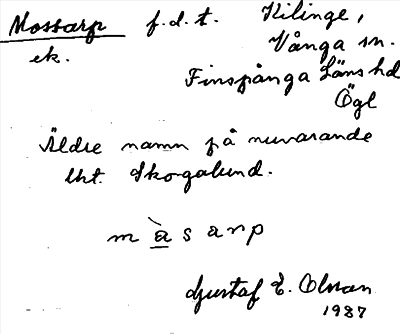 Mossarp f.d.t. Kilinge,
ek. Vånga sn.
Finspånga Läns hd
Ögl
Äldre namn på nuvarande
lht. Skogalund.
m à s arp
Gustaf E. Olson
1987